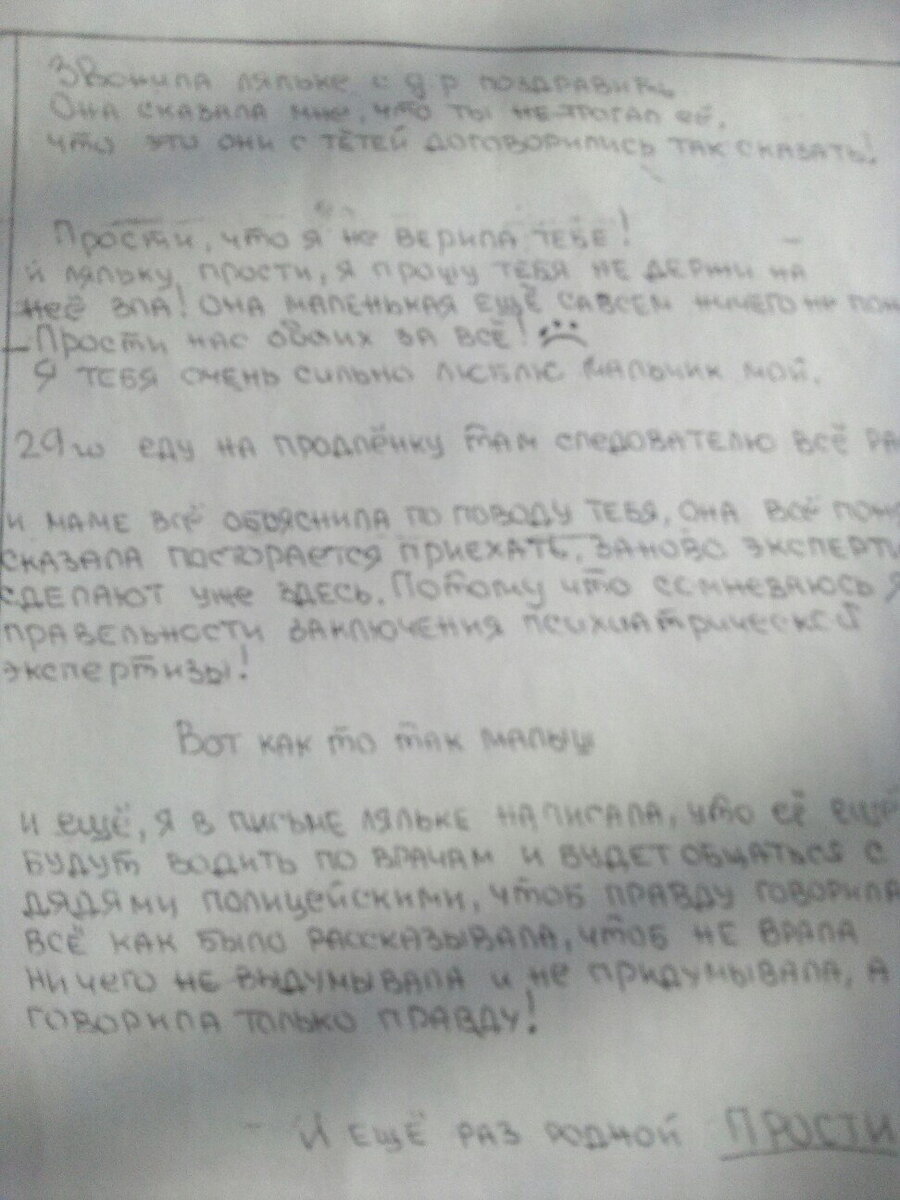 Звонила ляльке с д р поздравить
Она сказала мне, что ты не трогал её,
что это они с тётей договорились так сказать!
Прости, что я не верила тебе!
и ляльку прости, я прошу тебя не держи на
неё зла! Она маленькая ещё савсем ничего не пон
Прости нас обоих за всё!
Я тебя очень сильно люблю мальчик мой.
29го еду на продлёнку там следователю всё ра
и маме всё объяснила по поводу тебя, она всё поня
сказала постарается приехать, заново эксперти
сделают уже здесь. Потому что сомневаюсь я
правельности заключения психиатрической
экспертизы!
Вот как то так малыш
и ещё, я в письме ляльке написала, что её ещё
будут водить по врачам и будет общаться с
дядями полицейскими, чтоб правду говорила
всё как было рассказывала, чтоб не врала
ничего не выдумывала и не придумывала, а
говорила только правду!
- И ещё раз родной Прости